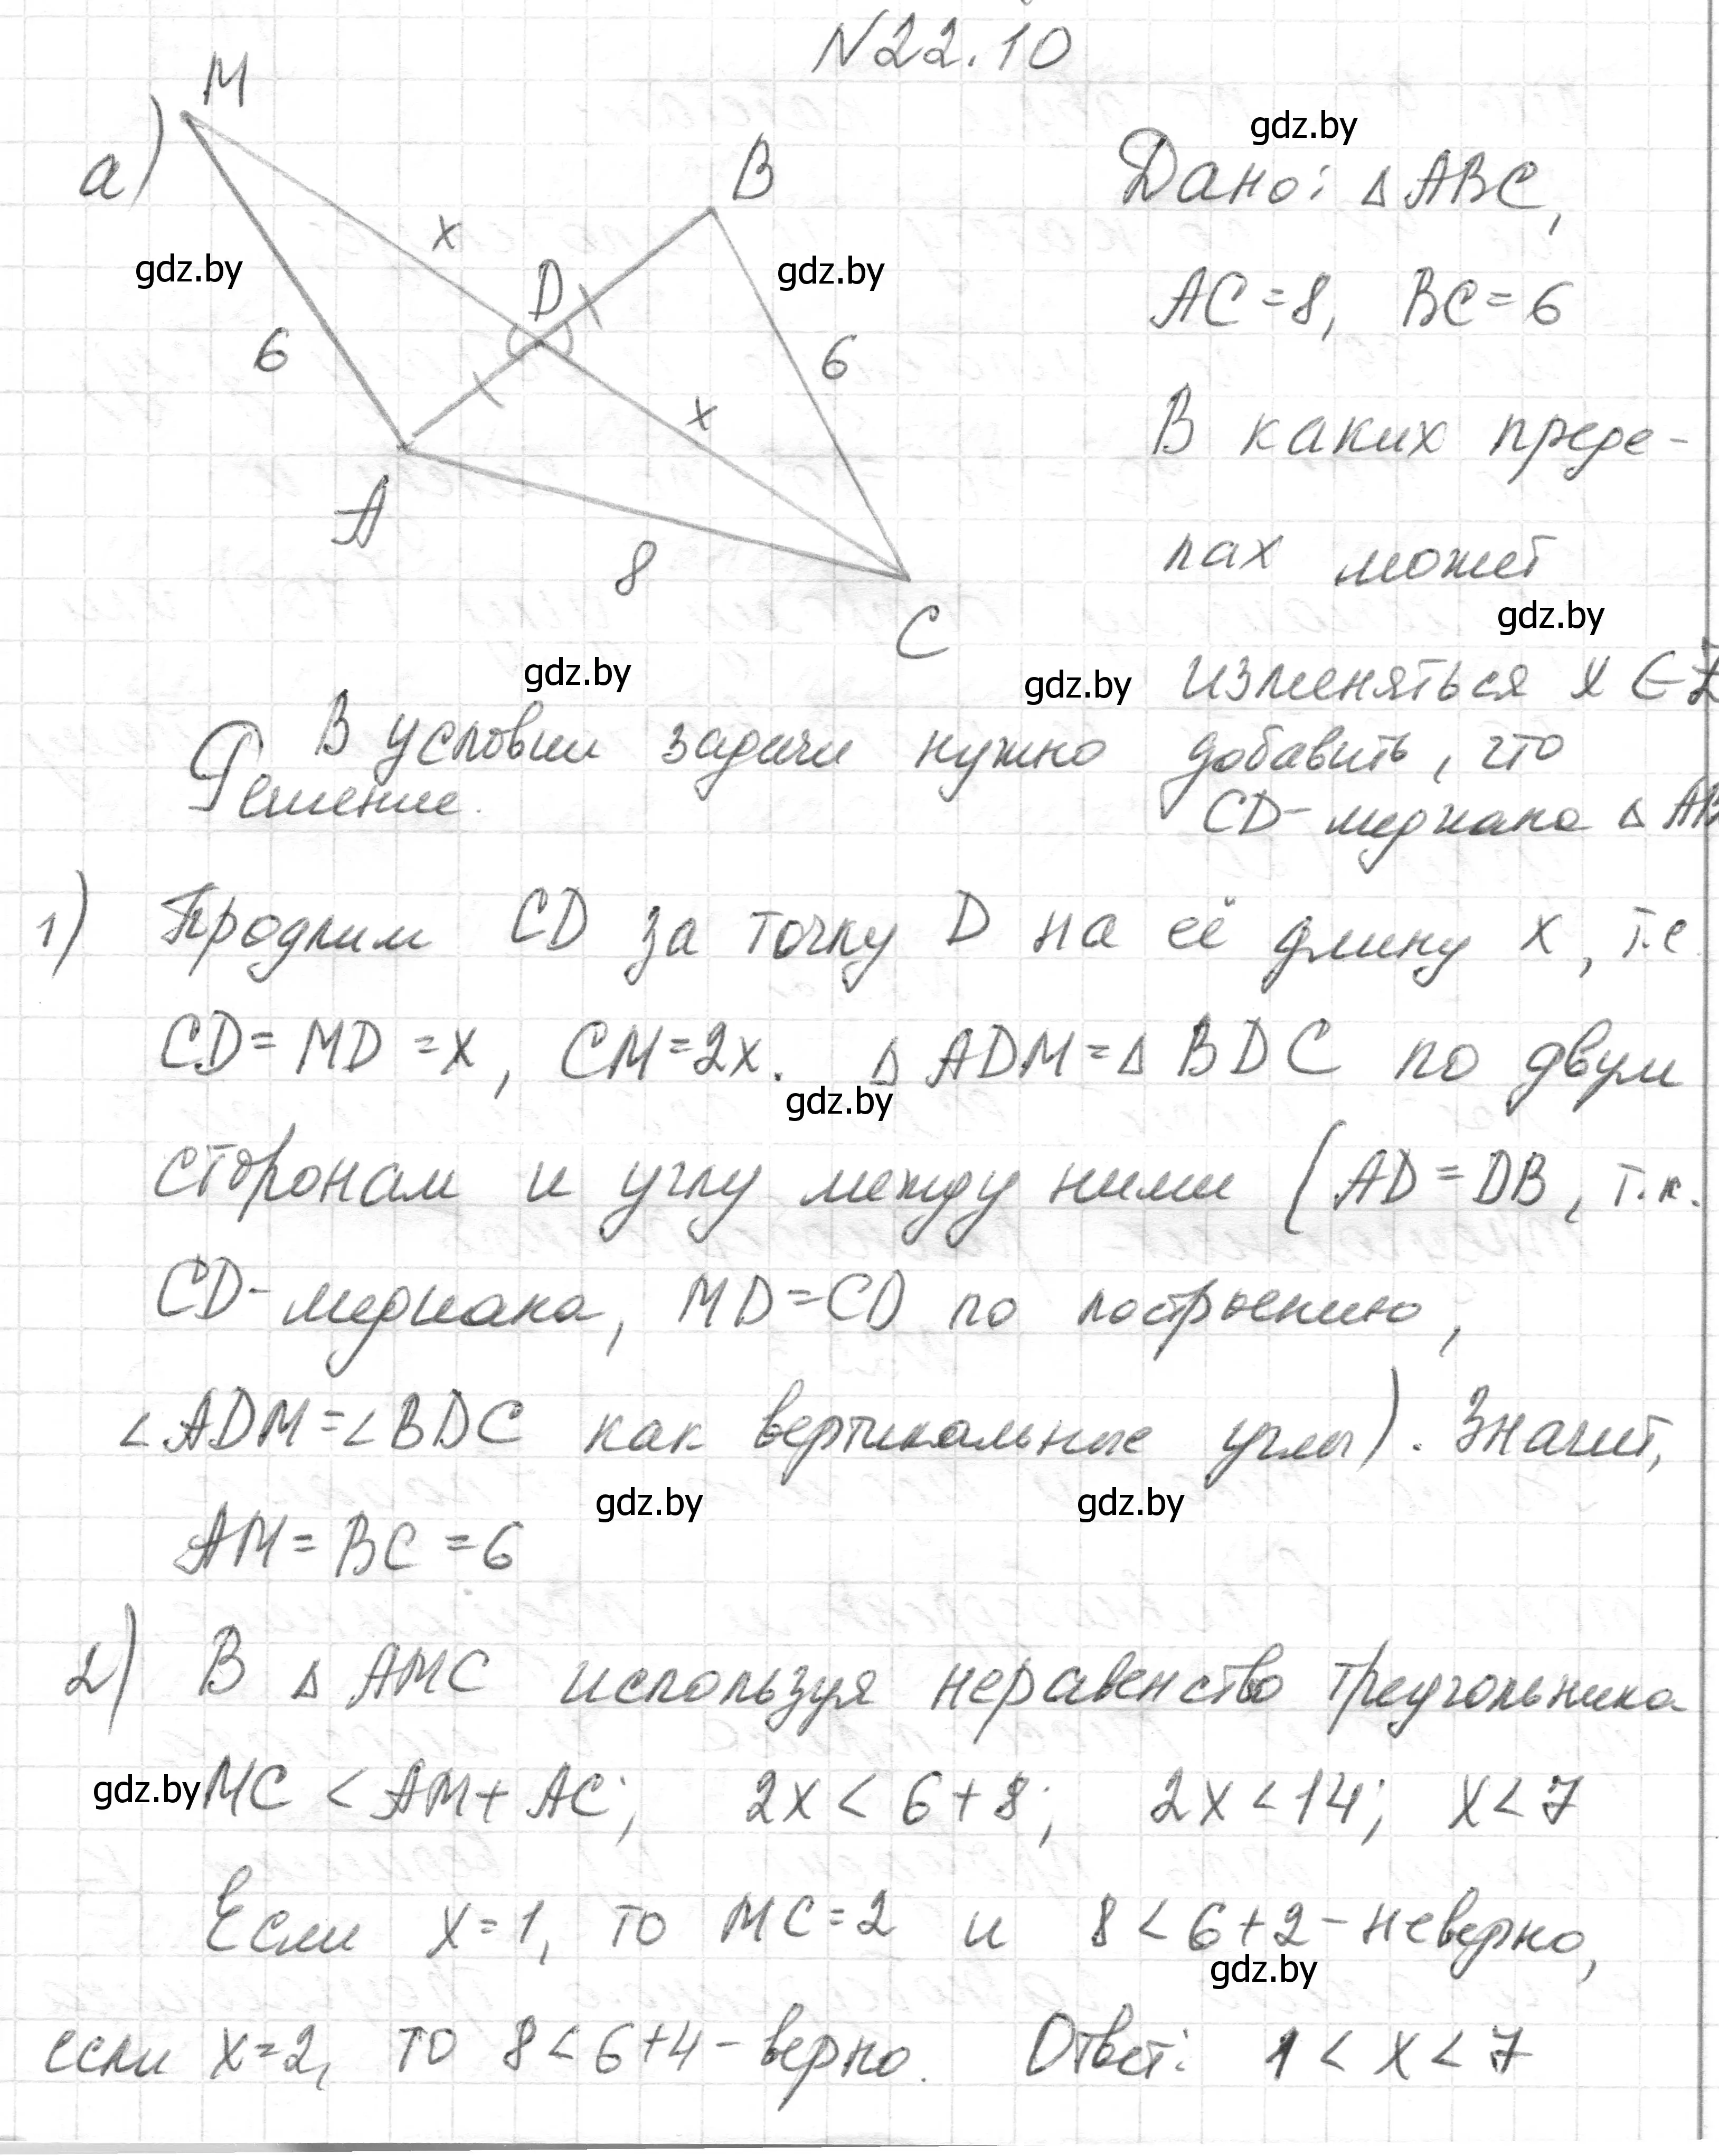 N22.10
M
а)
B
gdz.by
Дано: △ABC,
x
gdz.by
D
gdz.by
AC=8, BC=6
6
6
x
В каких преде-
A
8
лах может
gdz.by
C
gdz.by
gdz.by
изменяться x ∈ Z
В условии задачи нужно добавить, что
Решение.
CD-медиана △AB
1) Продлим CD за точку D на её длину x, т.е
CD=MD=x, CM=2x. △ADM=△BDC по двум
gdz.by
сторонам и углу между ними (AD=DB, т.к.
CD-медиана, MD=CD по построению,
∠ADM=∠BDC как вертикальные углы). Значит,
gdz.by
gdz.by
AM=BC=6
2) В △AMC используя неравенство треугольника
gdz.by
MC < AM+AC; 2x < 6+8; 2x<14; x<7
Если x=1, то MC=2 и 8<6+2-неверно,
gdz.by
если x=2, то 8<6+4-верно. Ответ: 1<x<7